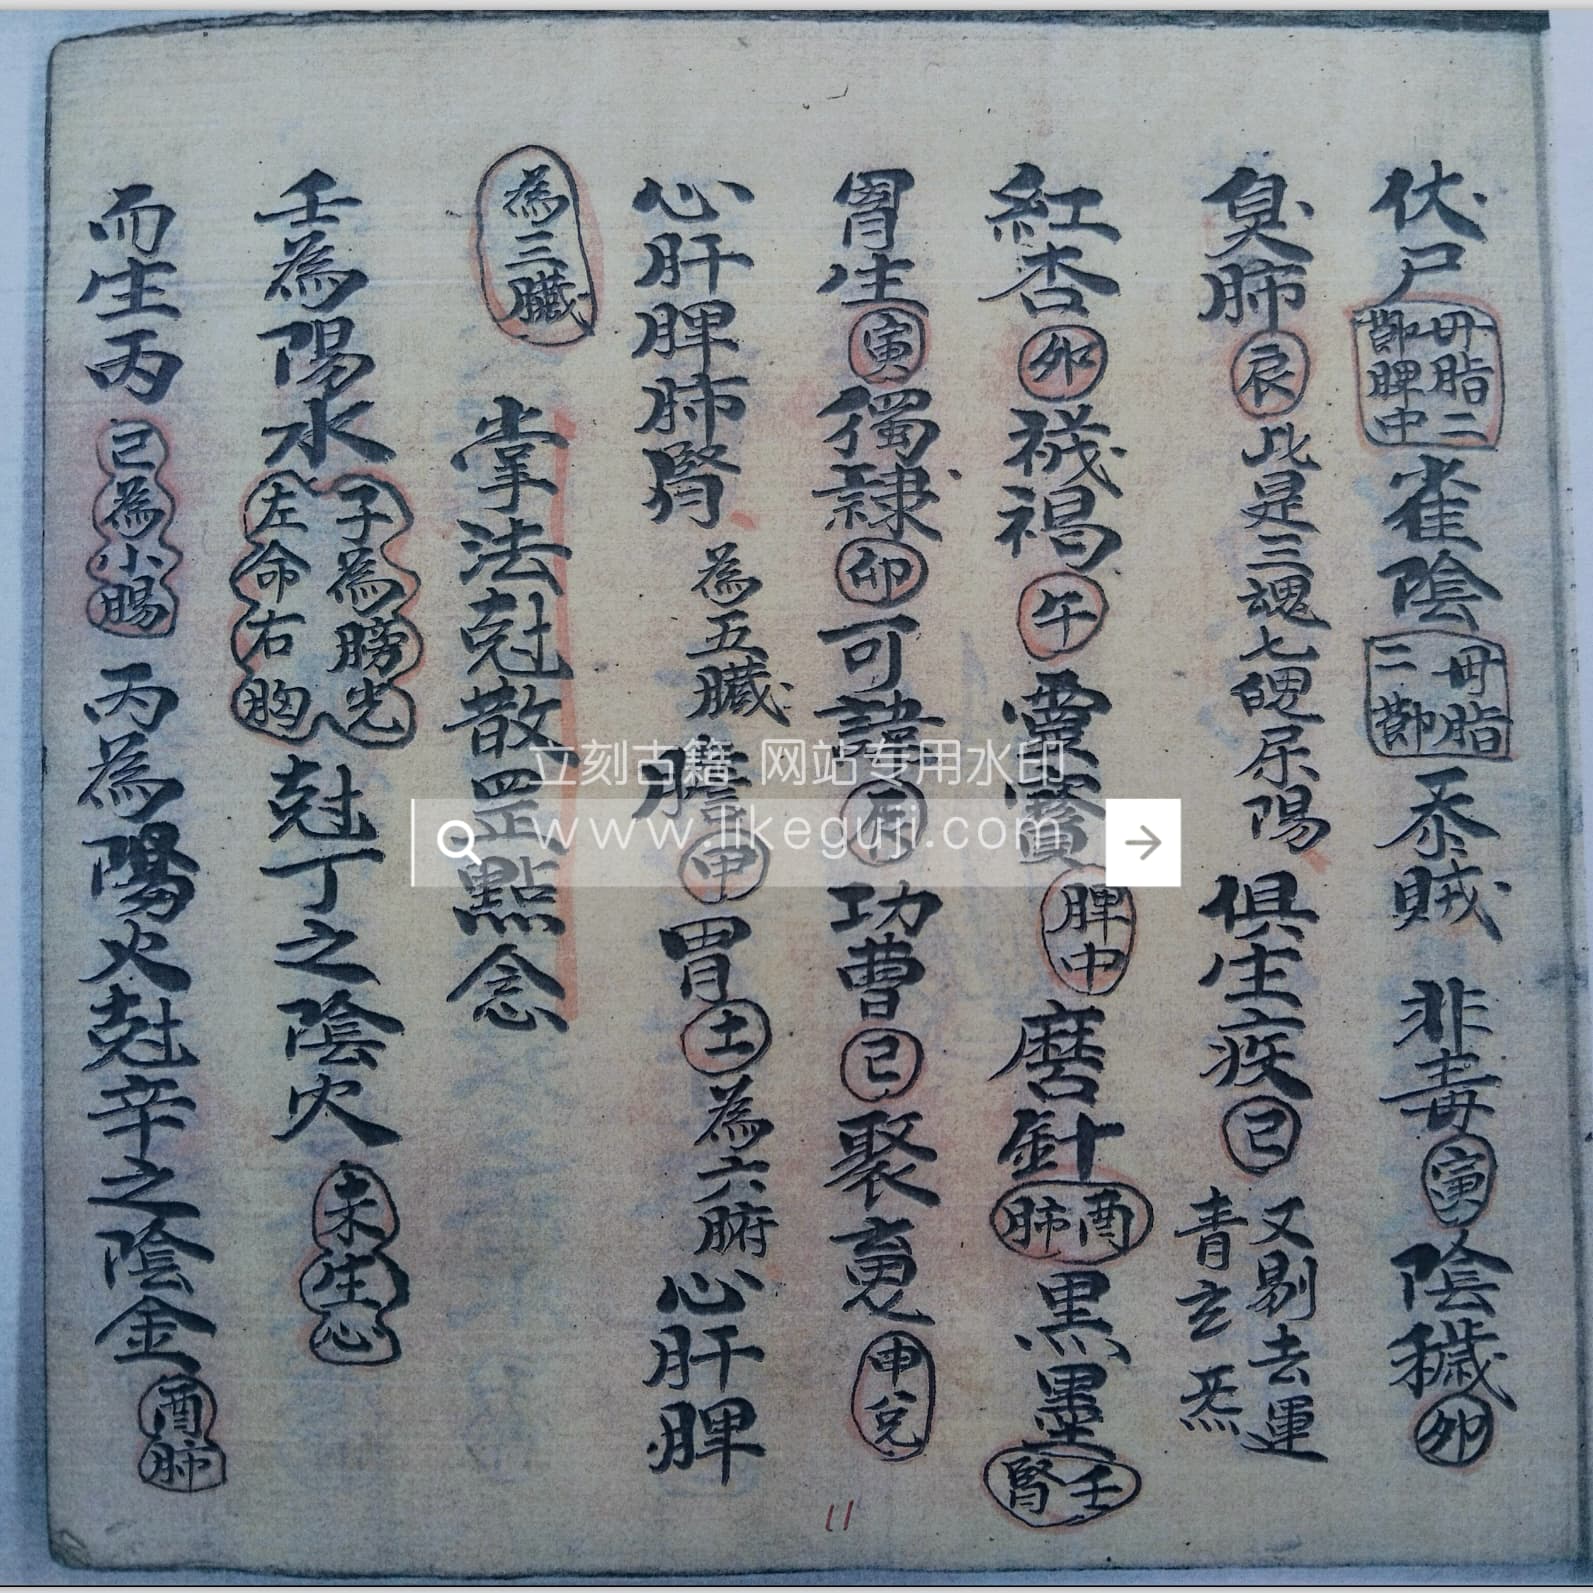 伏尸毌脂二節脾中雀陰毌脂二節吞賊 非毒寅陰穢卯
臭肺辰此是三魂七魄尿陽 俱生疫巳又剔去運青玄炁
紅杏卯襪禓午靈寶脾中磨針酉肺黑墨壬腎
胃生寅獨隸卯可諱 功曹巳聚 申兌
心肝脾肺腎為五臟 膽甲胃土為六腑心肝脾
為三臟 掌法尅散罡點念
壬為陽水子為膀光左命右胸尅丁之陰火未生心
而生丙巳為小腸 丙為陽火尅辛之陰金酉肺
立刻古籍 网站专用水印
www.likeguji.com
11